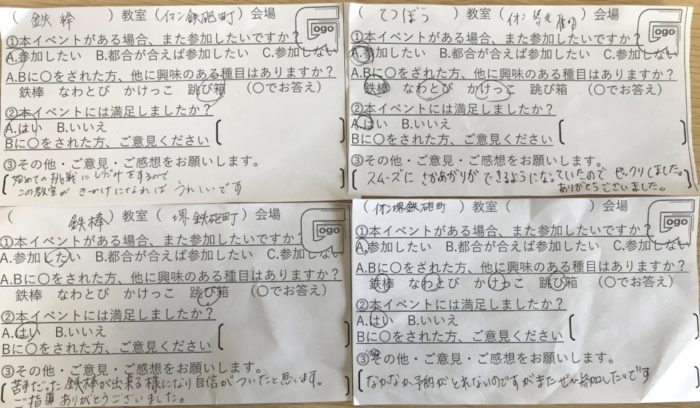 ( 鉄棒 ) 教室 ( イオン鉄砲町 ) 会場
ogo
①本イベントがある場合、また参加したいですか？
A.参加したい B.都合が合えば参加したい C.参加しない
A.Bに〇をされた方、他に興味のある種目はありますか？
鉄棒 なわとび かけっこ 跳び箱 （〇でお答え）
②本イベントには満足しましたか？
A.はい B.いいえ
Bに〇をされた方、ご意見ください
③その他・ご意見・ご感想をお願いします。
初めての挑戦に
この教室が きっかけになれば うれしいです
( てつぼう ) 教室 ( イオン ) 会場
ogo
①本イベントがある場合、また参加したいですか？
A.参加したい B.都合が合えば参加したい C.参加しない
A.Bに〇をされた方、他に興味のある種目はありますか？
鉄棒 なわとび かけっこ 跳び箱 （〇でお答え）
②本イベントには満足しましたか？
A.はい B.いいえ
Bに〇をされた方、ご意見ください
③その他・ご意見・ご感想をお願いします。
スムーズに さかあがりが できるようになっていたので ビックリしました。
ありがとうございました。
( 鉄棒 ) 教室 ( 堺鉄砲町 ) 会場
ogo
①本イベントがある場合、また参加したいですか？
A.参加したい B.都合が合えば参加したい C.参加しない
A.Bに〇をされた方、他に興味のある種目はありますか？
鉄棒 なわとび かけっこ 跳び箱 （〇でお答え）
②本イベントには満足しましたか？
A.はい B.いいえ
Bに〇をされた方、ご意見ください
③その他・ご意見・ご感想をお願いします。
苦手だった鉄棒が出来る様になり自信がついたと思います。
ご指導ありがとうございました。
( イオン堺鉄砲町 ) 教室 ( ) 会場
ogo
①本イベントがある場合、また参加したいですか？
A.参加したい B.都合が合えば参加したい C.参加しない
A.Bに〇をされた方、他に興味のある種目はありますか？
鉄棒 なわとび かけっこ 跳び箱 （〇でお答え）
②本イベントには満足しましたか？
A.はい B.いいえ
Bに〇をされた方、ご意見ください
③その他・ご意見・ご感想をお願いします。
なかなか予約がとれないのですがまたぜひ参加したいです